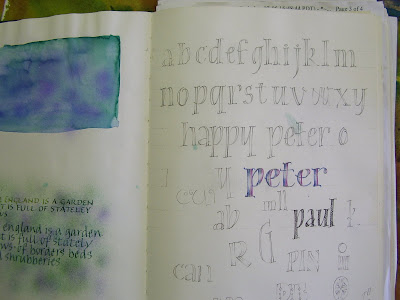 Page 5 of 4
abcdefghijklm
nopqrstuvwxy
happy peter o
y peter
ab mll paul k
R G
can PIN i
ENGLAND IS A GARDEN
T IS FULL OF STATELEY
WS
england is a garden
t is full of stately
ws of borders beds
d shrubberies